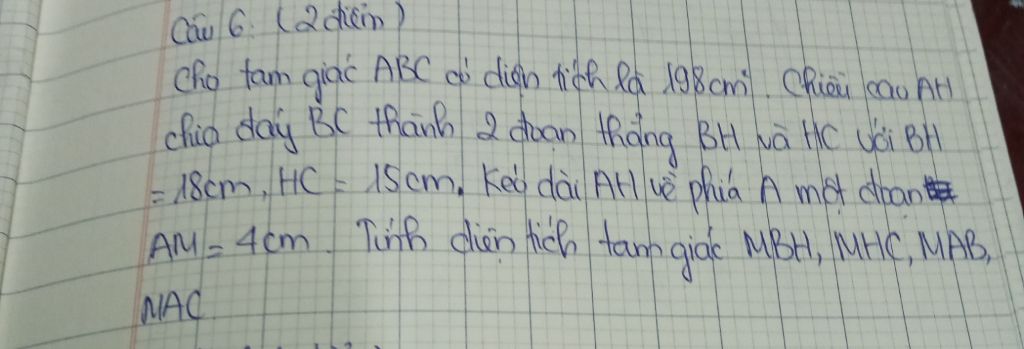 Câu 6: (2 điểm)
Cho tam giác ABC có diện tích là 198cm². Chiều cao AH
chia đáy BC thành 2 đoạn thẳng BH và HC với BH
= 18cm, HC = 15cm. Kéo dài AH về phía A một đoạn
AM = 4cm. Tính diện tích tam giác MBH, MHC, MAB,
MAC